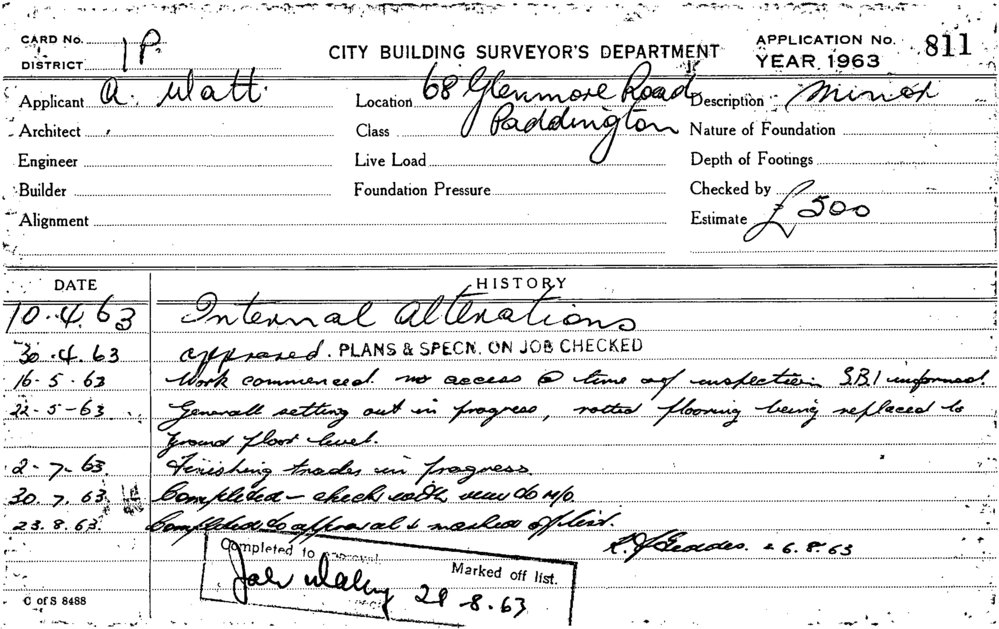 CARD No. 1P
DISTRICT
CITY BUILDING SURVEYOR'S DEPARTMENT
APPLICATION No. 811
YEAR 1963
Applicant A. Watt.
Location 68 Glenmore Road
Paddington
Description Minor
Architect
Class
Nature of Foundation
Engineer
Live Load
Depth of Footings
Builder
Foundation Pressure
Checked by
Alignment
Estimate £500
DATE HISTORY
10.4.63 Internal Alterations
30.4.63 approved. PLANS & SPECN. ON JOB CHECKED
16-5-63 Work commenced. no access @ time of inspection S.B.I informed.
22-5-63. Generall setting out in progress, rotted flooring being replaced to
Ground floor level.
2-7-63. Finishing trades in progress.
30.7.63. Completed - check with view to M/o
23.8.63. Completed to approval & marked off list.
26.8.63
Completed to approval
Marked off list.
29-8-63
C of S 8488